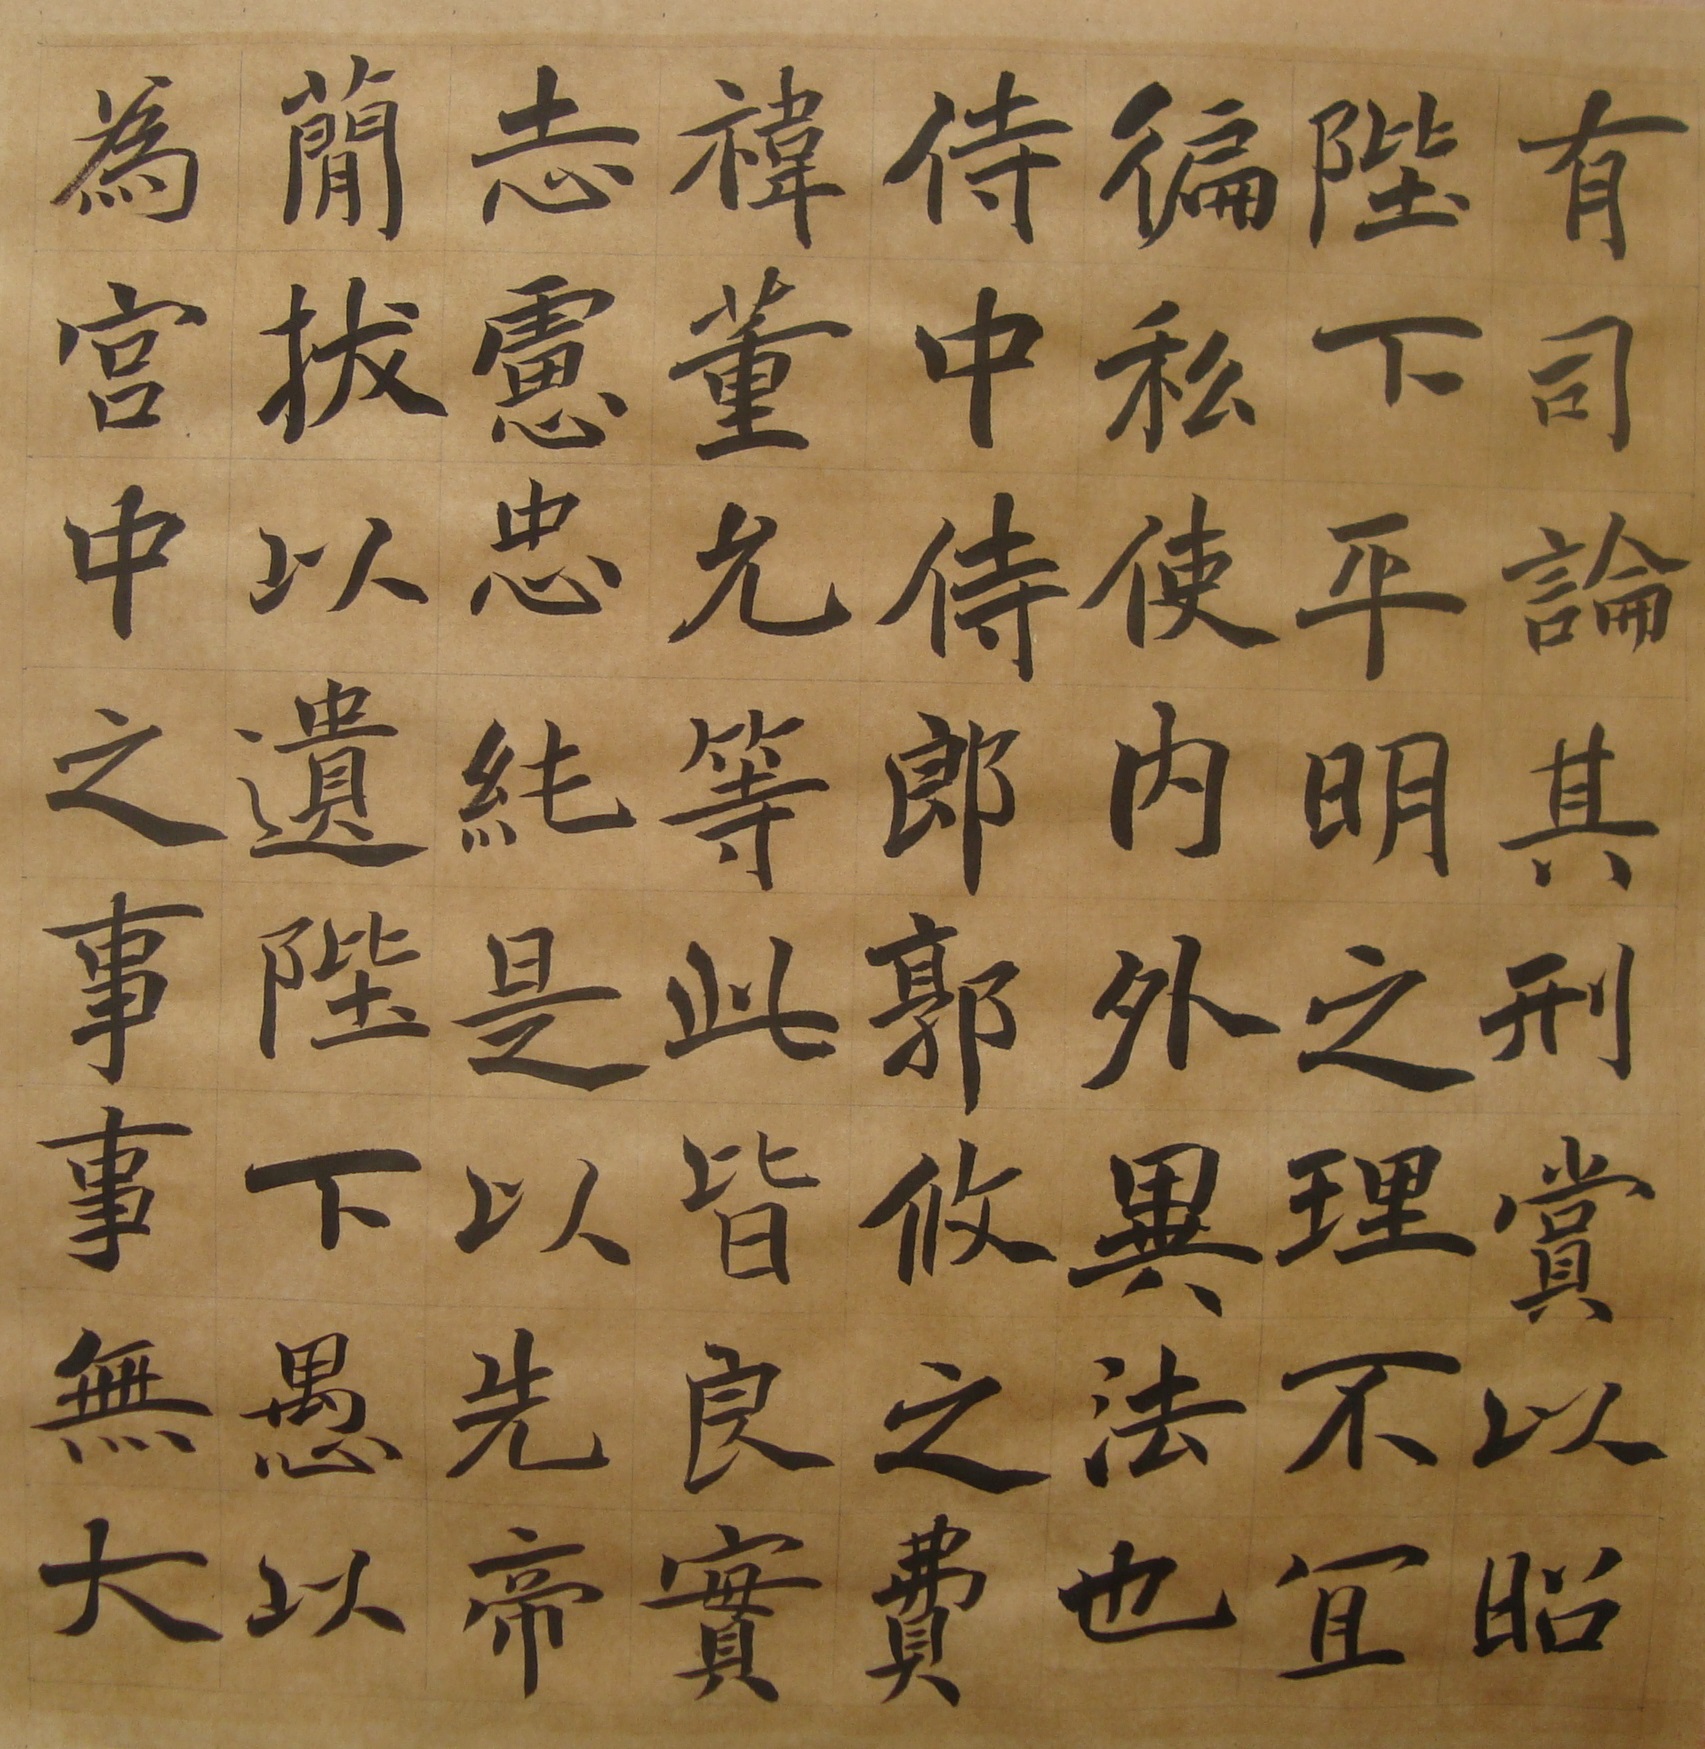 有司論其刑賞以昭
陛下平明之理不宜
徧私使内外異法也
侍中侍郎郭攸之費
禕董允等此皆良實
志慮忠純是以先帝
蕳拔以遺陛下愚以
為宮中之事事無大